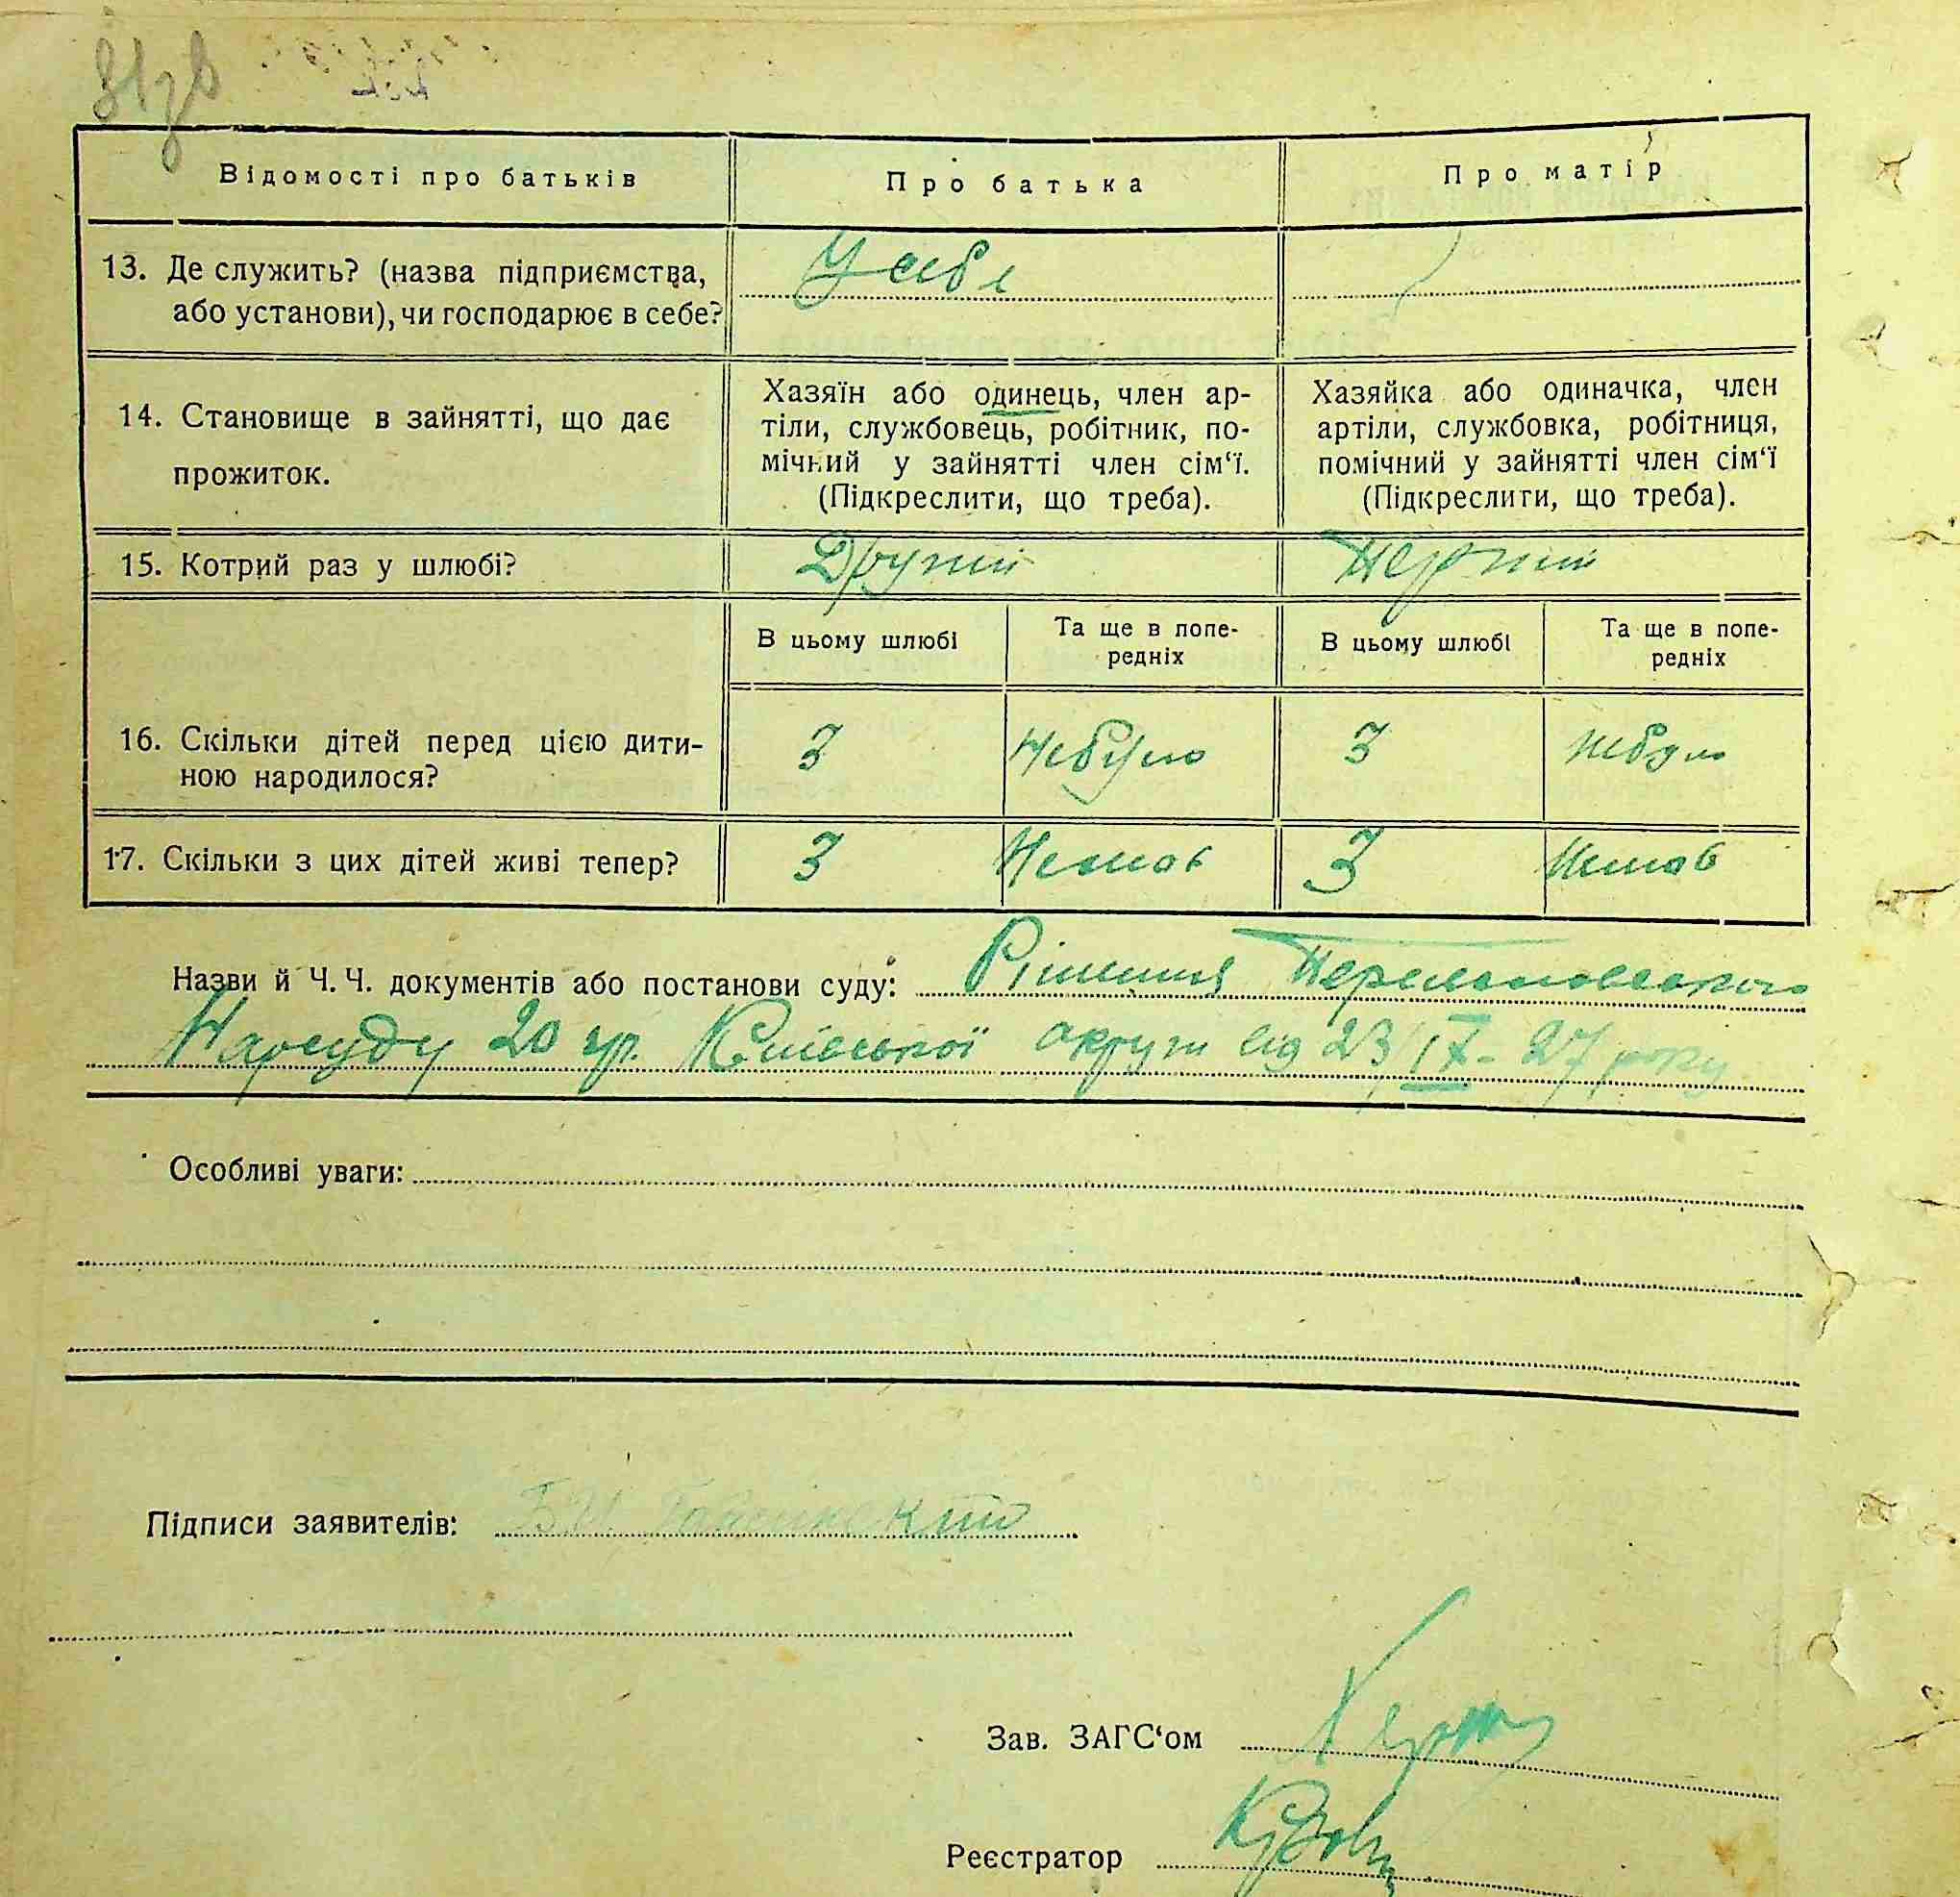 81зв
Відомості про батьків
Про батька
Про матір
13. Де служить? (назва підприємства,
або установи), чи господарює в себе?
У себе
14. Становище в зайнятті, що дає
прожиток.
Хазяїн або одинець, член ар-
тіли, службовець, робітник, по-
мічний у зайнятті член сім‘ї.
(Підкреслити, що треба).
Хазяйка або одиначка, член
артіли, службовка, робітниця,
помічний у зайнятті член сім‘ї
(Підкреслити, що треба).
15. Котрий раз у шлюбі?
Другий
Перший
В цьому шлюбі
Та ще в попе-
редніх
В цьому шлюбі
Та ще в попе-
редніх
16. Скільки дітей перед цією дити-
ною народилося?
3
Небуло
3
Небуло
17. Скільки з цих дітей живі тепер?
3
Немає
3
Немає
Назви й Ч. Ч. документів або постанови суду: Рішення
Нарсуду 20 гр. Київської округи від 23/IX-27 року
Особливі уваги:
Підписи заявителів:
Зав. ЗАГС‘ом
Реєстратор